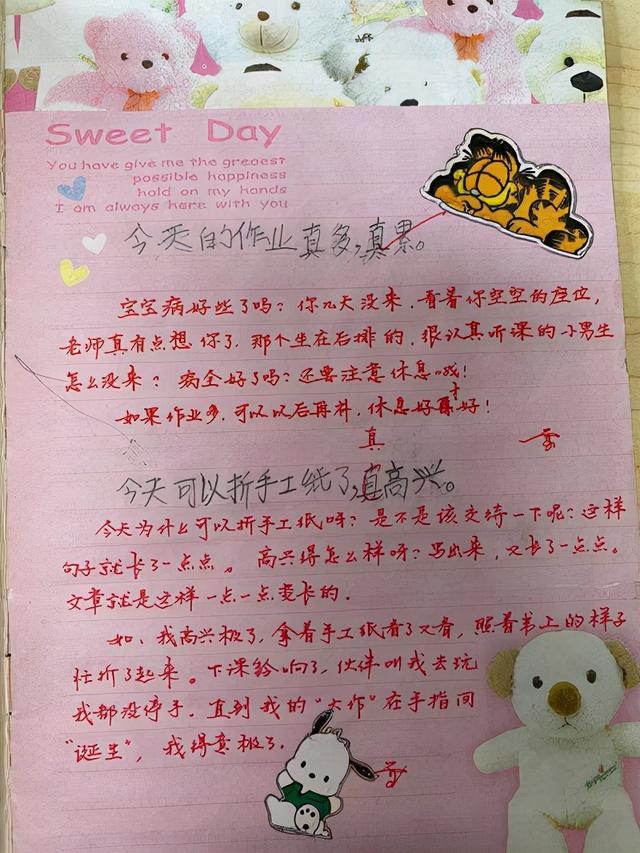 Sweet Day
You have give me the greaest
possible happiness
hold on my hands
I am always here with you
今天的作业真多,真累。
宝宝病好些了吗?你几天没来,看着你空空的座位,
老师真有点想你了,那个坐在后排的,很认真听课的小男生
怎么没来?病全好了吗?还要注意休息哦!
如果作业多,可以以后再补,休息好才好!
真
今天可以折手工纸了,真高兴。
今天为什么可以折手工纸呀?是不是该交待一下呢?这样
句子就长了一点点。高兴得怎么样呀?写出来,又长了一点点。
文章就是这样一点一点变长的.
如、我高兴极了,拿着手工纸看了又看,照着书上的样子
忙折了起来。下课铃响了,伙伴叫我去玩
我都没停手,直到我的“大作”在手指间
“诞生”,我得意极了.